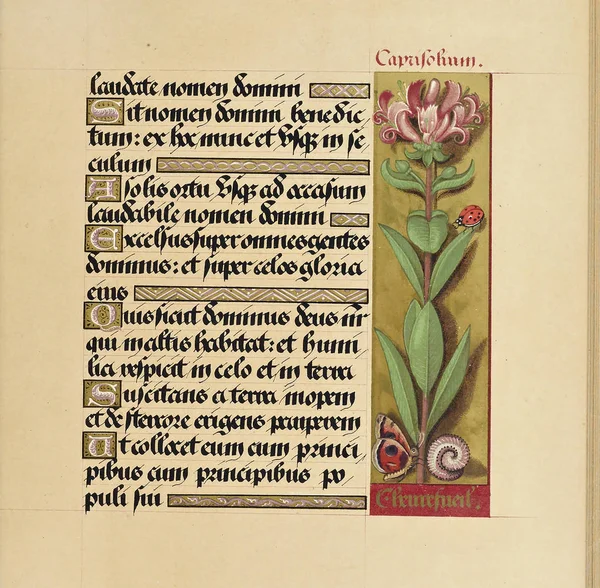 Caprifolium.
laudate nomen domini
Sit nomen domini benedic
tum: ex hoc nunc et vsq3 in se
culum
A solis ortu vsq3 ad occasum
laudabile nomen domini
Excelsus super omnes gentes
dominus: et super celos gloria
eius
Quis sicut dominus deus nr
qui in altis habitat: et humi
lia respicit in celo et in terra
Suscitans a terra inopem
et de stercore erigens pauperem
Ut collocet eum cum princi
pibus cum principibus po
puli sui
Cheuresueil.